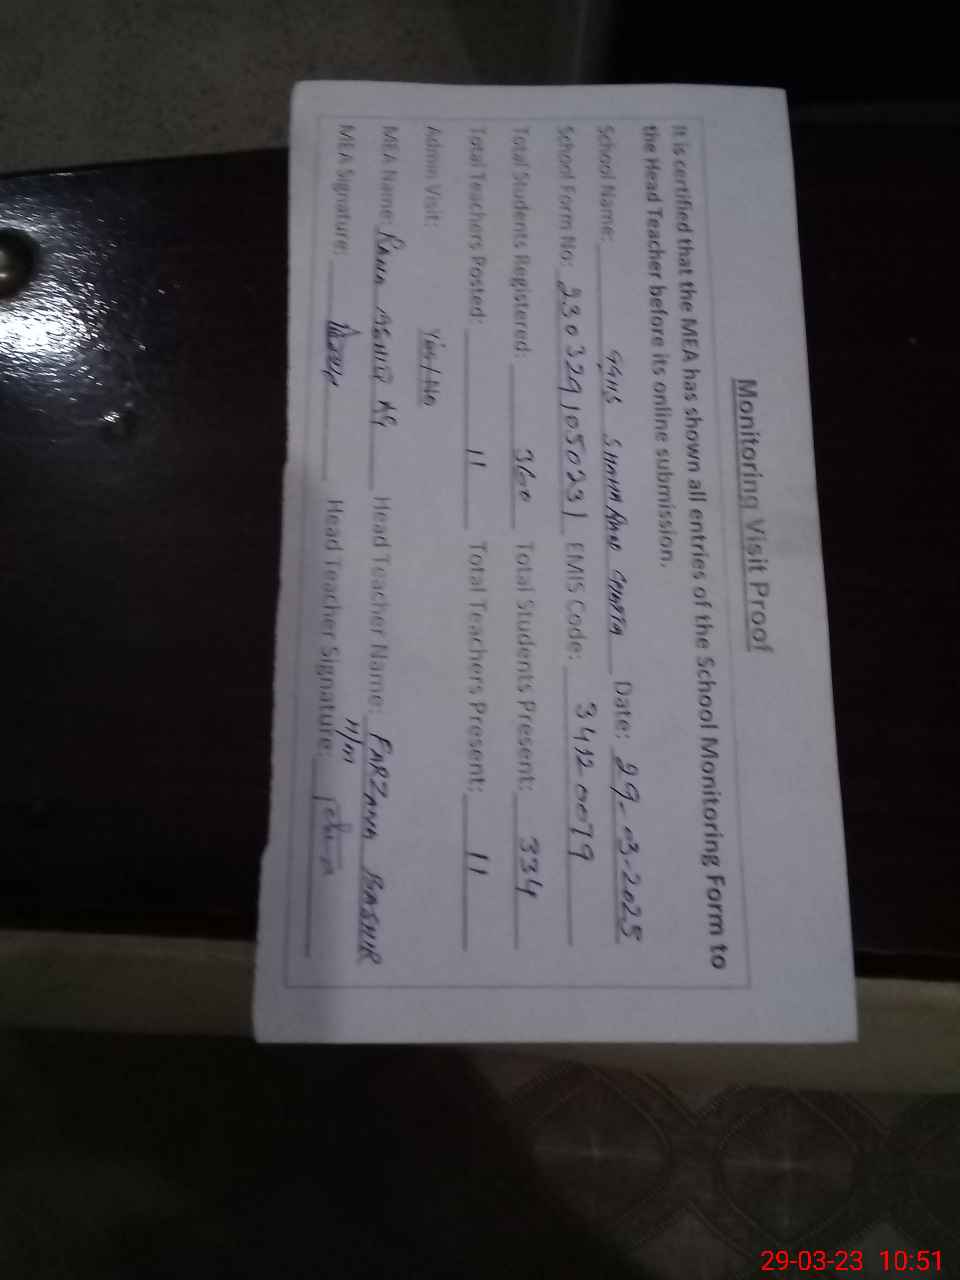 Monitoring Visit Proof
It is certified that the MEA has shown all entries of the School Monitoring Form to
the Head Teacher before its online submission.
School Name: Date: 29-03-2023
School Form No: 230329105023 EMIS Code: 34120079
Total Students Registered: 360 Total Students Present: 334
Total Teachers Posted: 11 Total Teachers Present: 11
Admin Visit: Yes/No
MEA Name: Head Teacher Name: FARZANA BASHIR
MEA Signature: Head Teacher Signature:
29-03-23 10:51